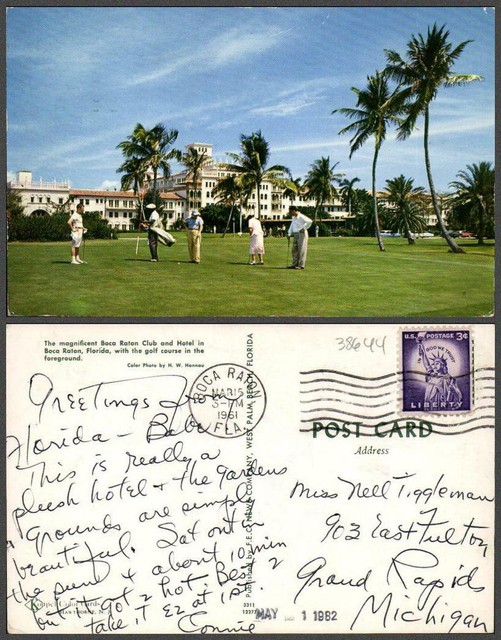 The magnificent Boca Raton Club and Hotel in
Boca Raton, Florida, with the golf course in the
foreground.
Color Photo by H. W. Hannau
Greetings fr
Florida - Babe
This is really a
plush hotel & the gardens
& grounds are simply
beautiful. Sat out in
the sun & about 10 min
but it got 2 hot. Best 2
take it EZ at 1st.
Connie
BOCA RATON
MAR 13
1961
FLA.
Published by F.E.C. NEWS COMPANY, WEST PALM BEACH, FLORIDA
38644
U.S. POSTAGE 3¢
IN GOD WE TRUST
LIBERTY
POST CARD
Address
Miss Nell Tiggleman
903 East Fulton
Grand Rapids
Michigan
Color Card
HAWTHORNE, N. J.
3311
MAY 1 1982